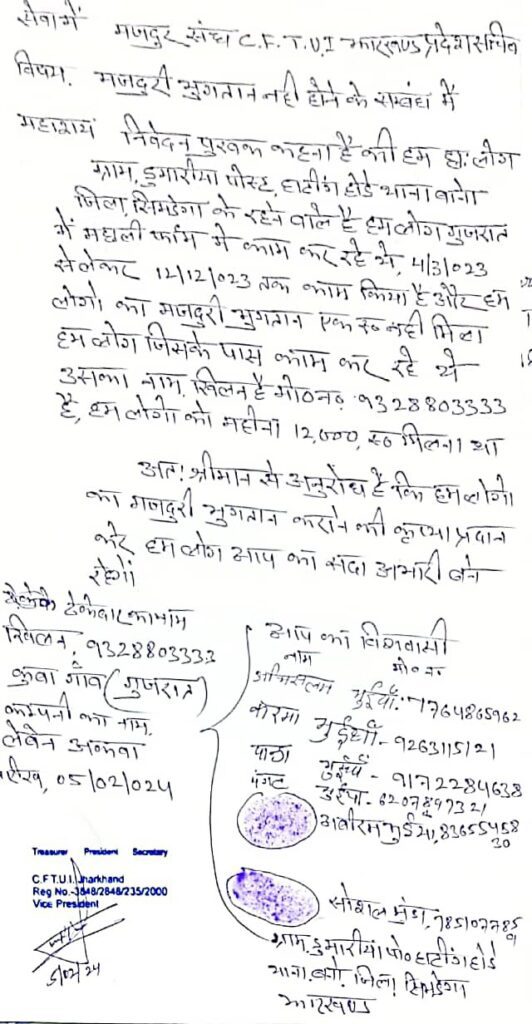 सेवा में मजदुर संघ C.F.T.U.I झारखण्ड प्रदेश सचिव
विषय. मजदुरी भुगतान नही होने के सम्बंध में
महाशय निवेदन पुरवक कहना है की हम छः लोग
ग्राम, डुमारीया पोस्ट, हाटींग होडे थाना बानो
जिला, सिमडेगा के रहने वाले है हम लोग गुजरात
में मछली फॉम में काम कर रहे थे, 4/3/023
से लेकर 12/12/023 तक काम किया है और हम
लोगो का मजदुरी भुगतान एक रू नही मिला
हम लोग जिसके पास काम कर रहे थे
उसका नाम, खिलन है मो०न० 9328803333
है, हम लोगो को महीना 12,000, रू मिलना था
अतः श्रीमान से अनुरोध है कि हम लोगो
का मजदुरी भुगतान कराने की कृप्या प्रदान
करे हम लोग आप का सदा आभारी बने
रहेगें
ठेकेदार का नाम
खिलन, 9328803333
कुवा गॉव (गुजरात)
कम्पनी का नाम,
तारीख, 05/02/024
आप का विश्वासी
नाम मो० न०
भुईयाँ. 7764865962
भुईयाँ - 9263115121
भुईयाँ - 9172284638
भुईया - 6207849321
भुईया, 8365545830
सोशल मुंडा, 785107785
ग्राम, डुमारीया पो० हाटींग होडे
थाना, बानो, जिला, सिमडेगा
झारखण्ड
Treasurer President Secretary
C.F.T.U.I. Jharkhand
Reg No.-3848/2848/235/2000
Vice President
5/02/24